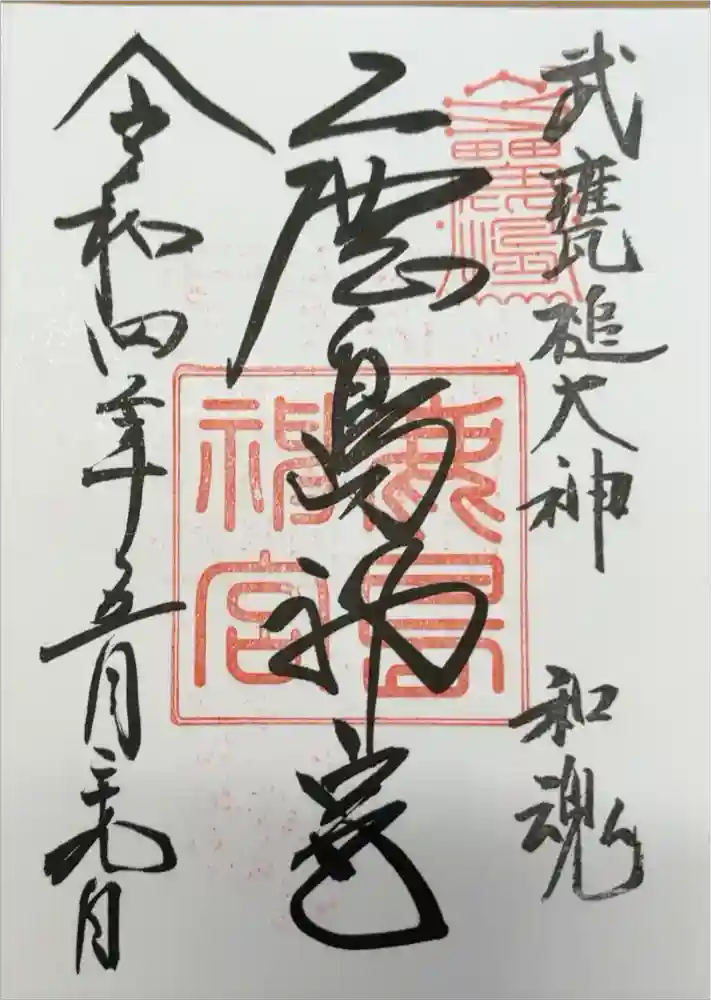 武甕槌大神 和魂
鹿島神宮
鹿島
神宮
令和四年五月二十九日